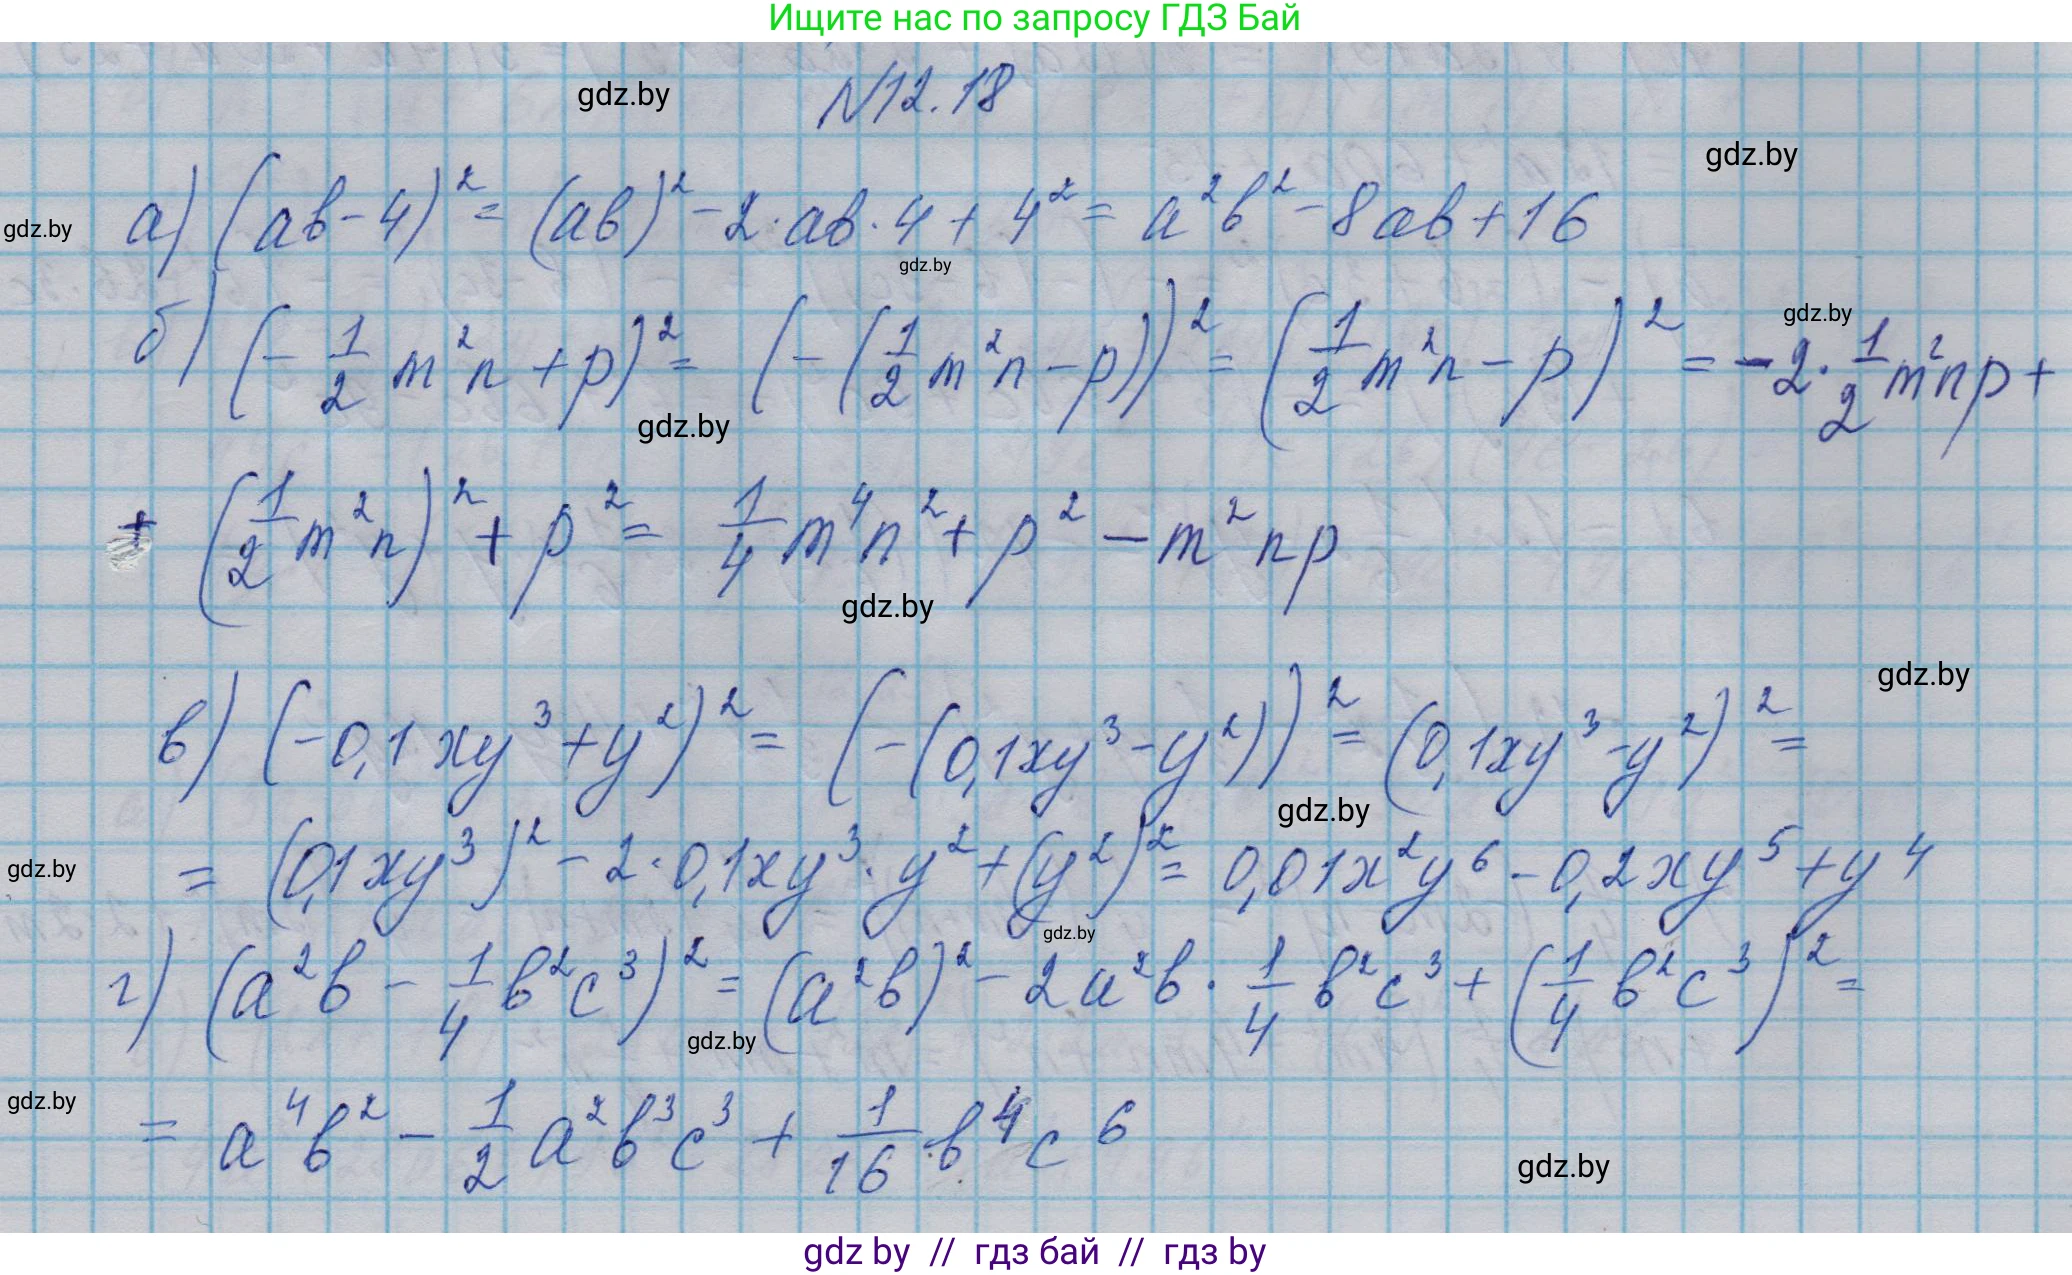 Ищите нас по запросу ГДЗ Бай
gdz.by
N12.18
gdz.by
gdz.by
а) (ab-4)² = (ab)² - 2·ab·4 + 4² = a²b² - 8ab + 16
gdz.by
gdz.by
б) (-1/2 m²n + p)² = (-(1/2 m²n - p))² = (1/2 m²n - p)² = -2·1/2 m²np +
gdz.by
+ (1/2 m²n)² + p² = 1/4 m⁴n² + p² - m²np
gdz.by
gdz.by
в) (-0,1xy³ + y²)² = (-(0,1xy³ - y²))² = (0,1xy³ - y²)² =
gdz.by
gdz.by
= (0,1xy³)² - 2·0,1xy³·y² + (y²)² = 0,01x²y⁶ - 0,2xy⁵ + y⁴
gdz.by
г) (a²b - 1/4 b²c³)² = (a²b)² - 2a²b · 1/4 b²c³ + (1/4 b²c³)² =
gdz.by
gdz.by
= a⁴b² - 1/2 a²b³c³ + 1/16 b⁴c⁶
gdz.by
gdz by // гдз бай // гдз by